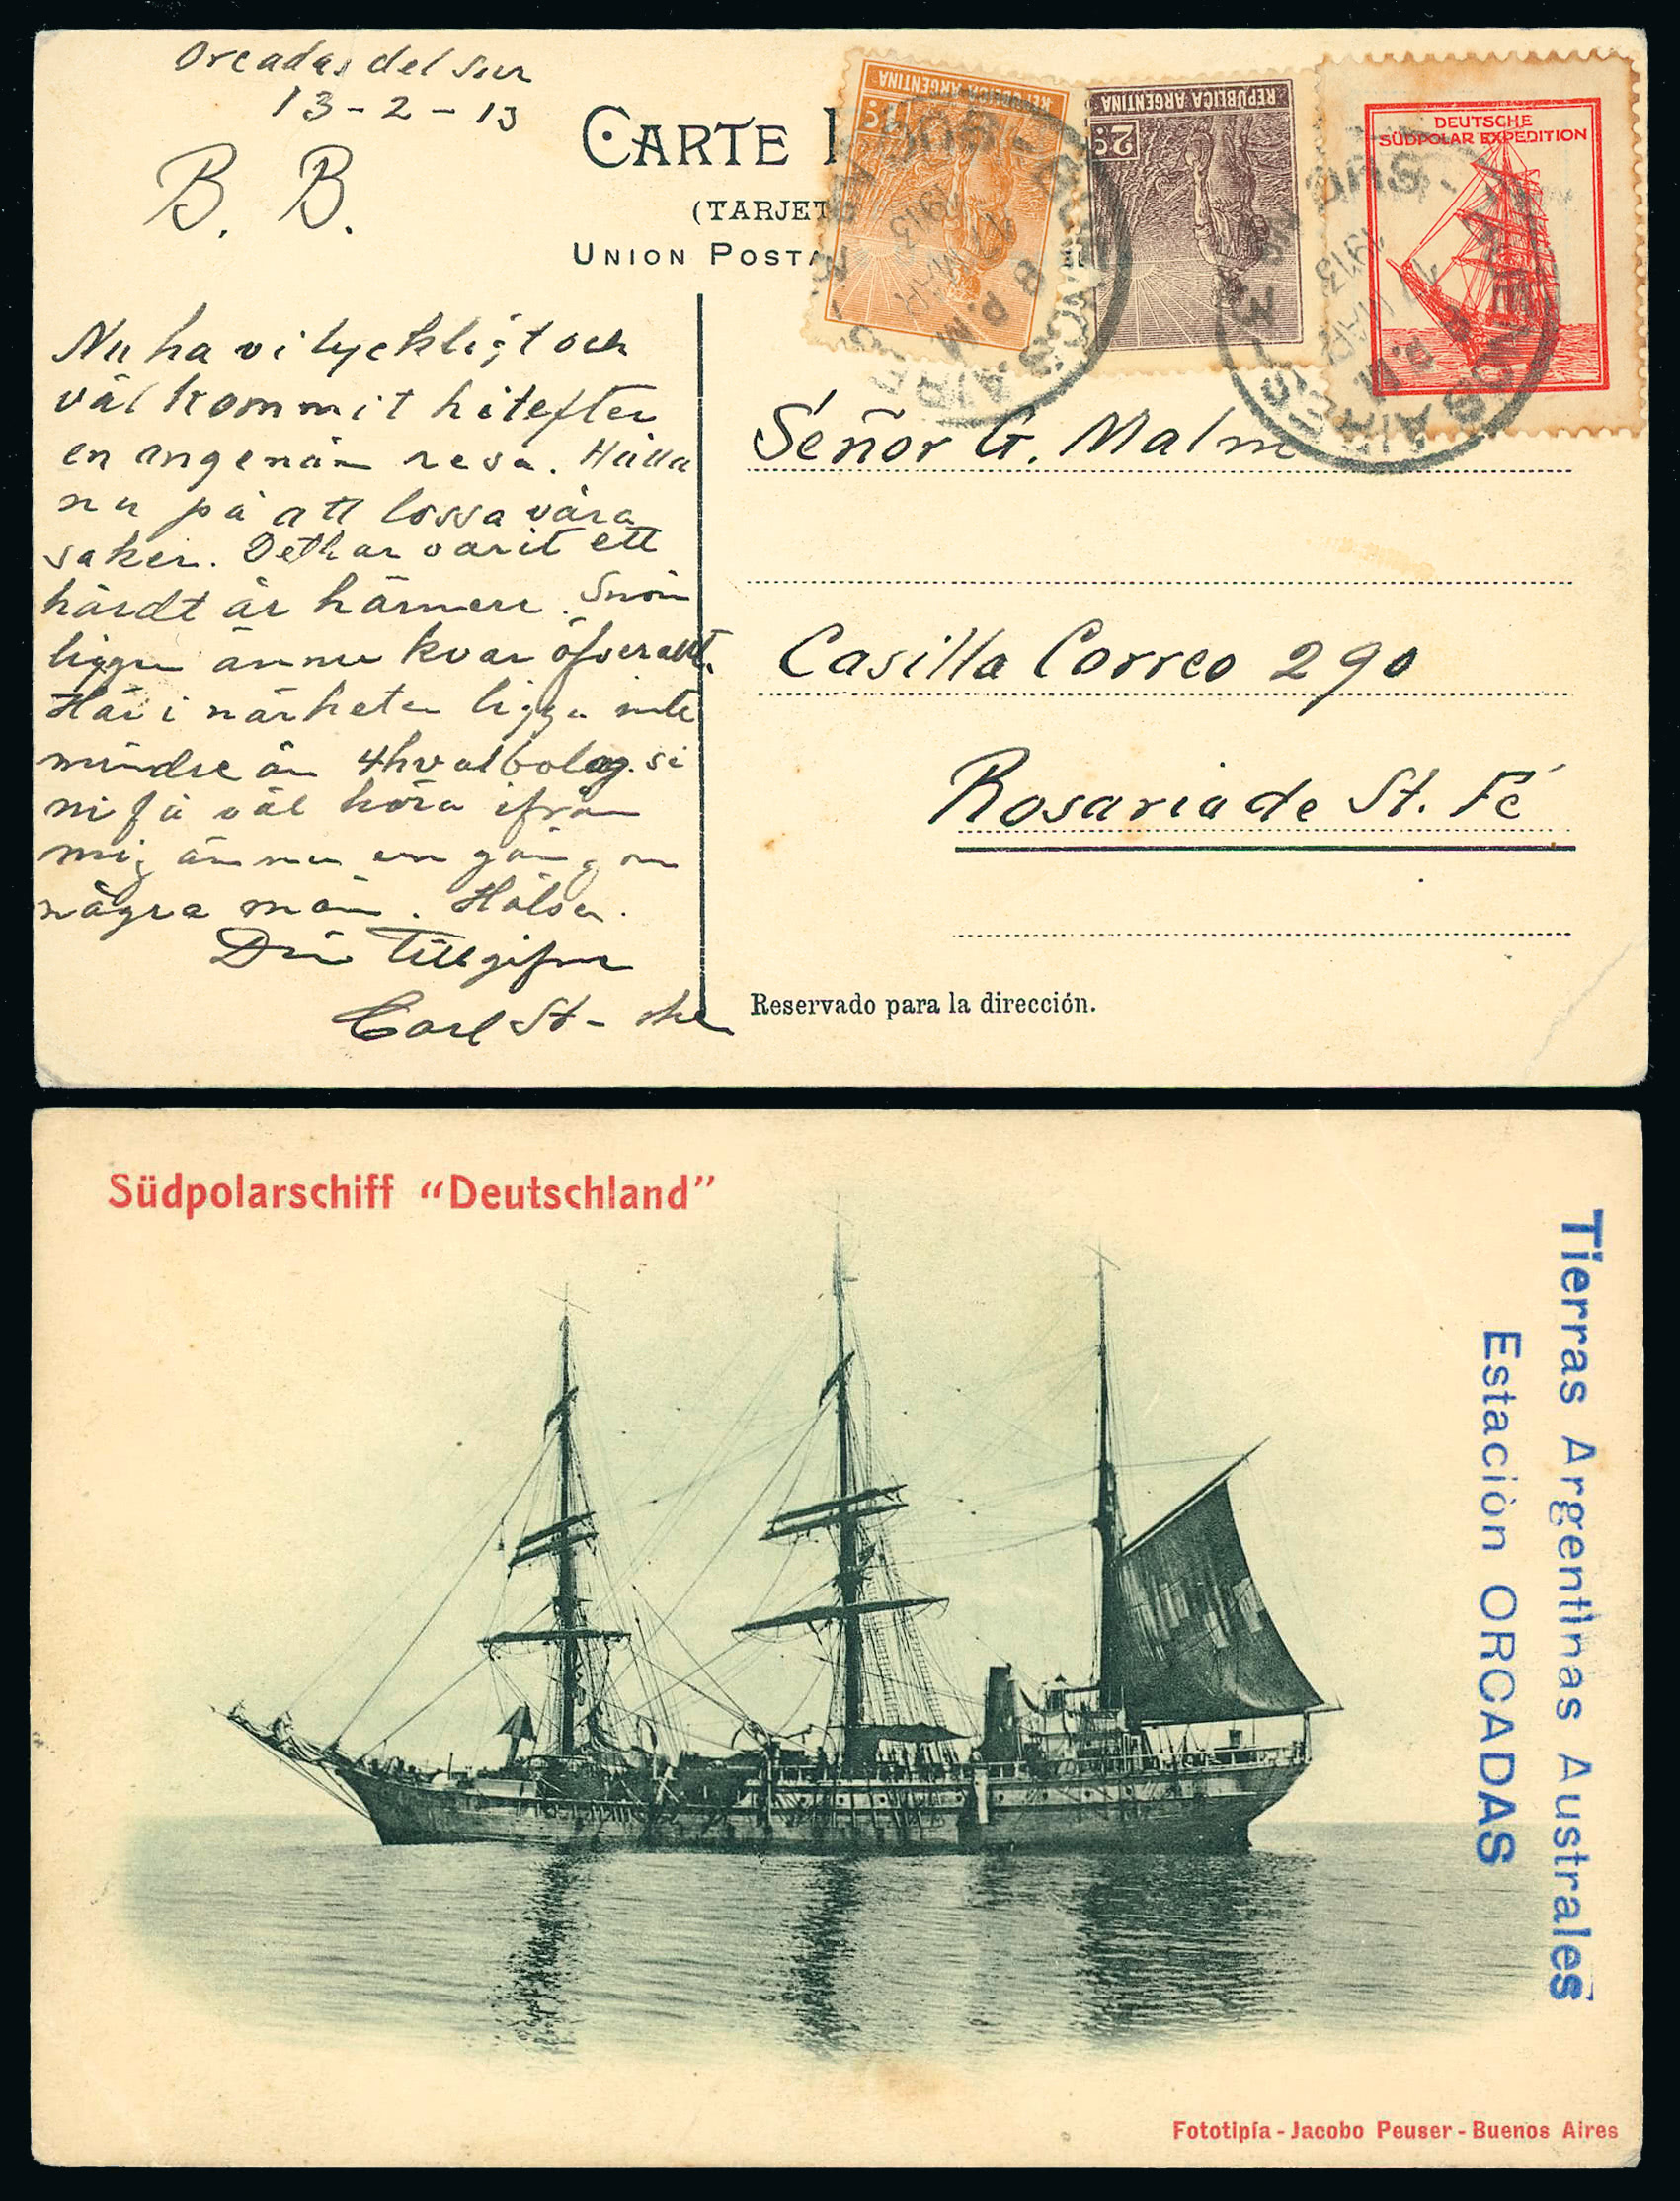 Orcadas del Sur
13-2-13
B. B.
CARTE
(TARJET
UNION POSTA
REPUBLICA ARGENTINA
REPUBLICA ARGENTINA
2c
DEUTSCHE
SÜDPOLAR EXPEDITION
BUENOS AIRES
17 MAR
1913
8 P.M.
BUENOS AIRES
17 MAR
1913
8 P.M.
Nu ha vi lyckligt och
väl kommit hit efter
en angenäm resa. Hålla
nu på att lossa våra
saker. Det har varit ett
hårdt år härnere. Snön
ligger ännu kvar öfverallt.
Här i närheten ligger inte
mindre än 4 hvalbolag. si
ni få väl höra ifrån
mig ännu en gång om
några mån. Hälsar.
Din Tillgifne
Carl St
Señor G. Malm
Casilla Correo 290
Rosario de St. Fé
Reservado para la dirección.
Südpolarschiff "Deutschland"
Tierras Argentinas Australes
Estación ORCADAS
Fototipía - Jacobo Peuser - Buenos Aires